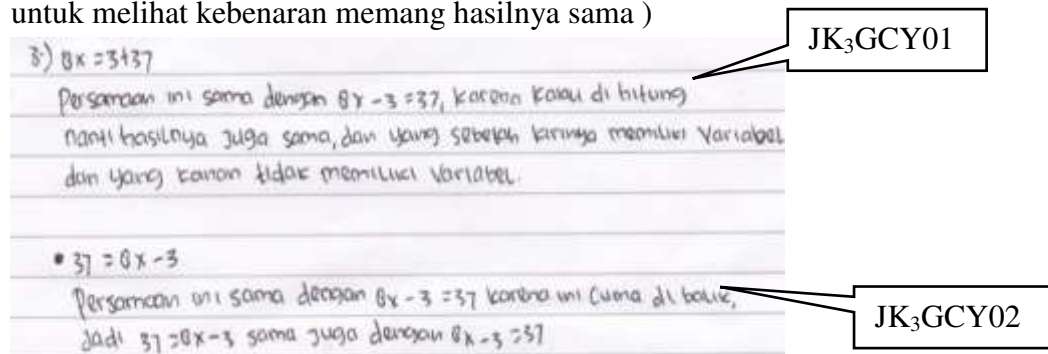 untuk melihat kebenaran memang hasilnya sama )
JK₃GCY01
3.) 8x = 3+37
Persamaan ini sama dengan 8x - 3 = 37, karena kalau di hitung
nanti hasilnya juga sama, dan yang sebelah kirinya memiliki Variabel
dan yang kanan tidak memiliki Variabel.
• 37 = 8x - 3
Persamaan ini sama dengan 8x - 3 = 37 karena ini Cuma di balik,
Jadi 37 = 8x - 3 sama juga dengan 8x - 3 = 37
JK₃GCY02